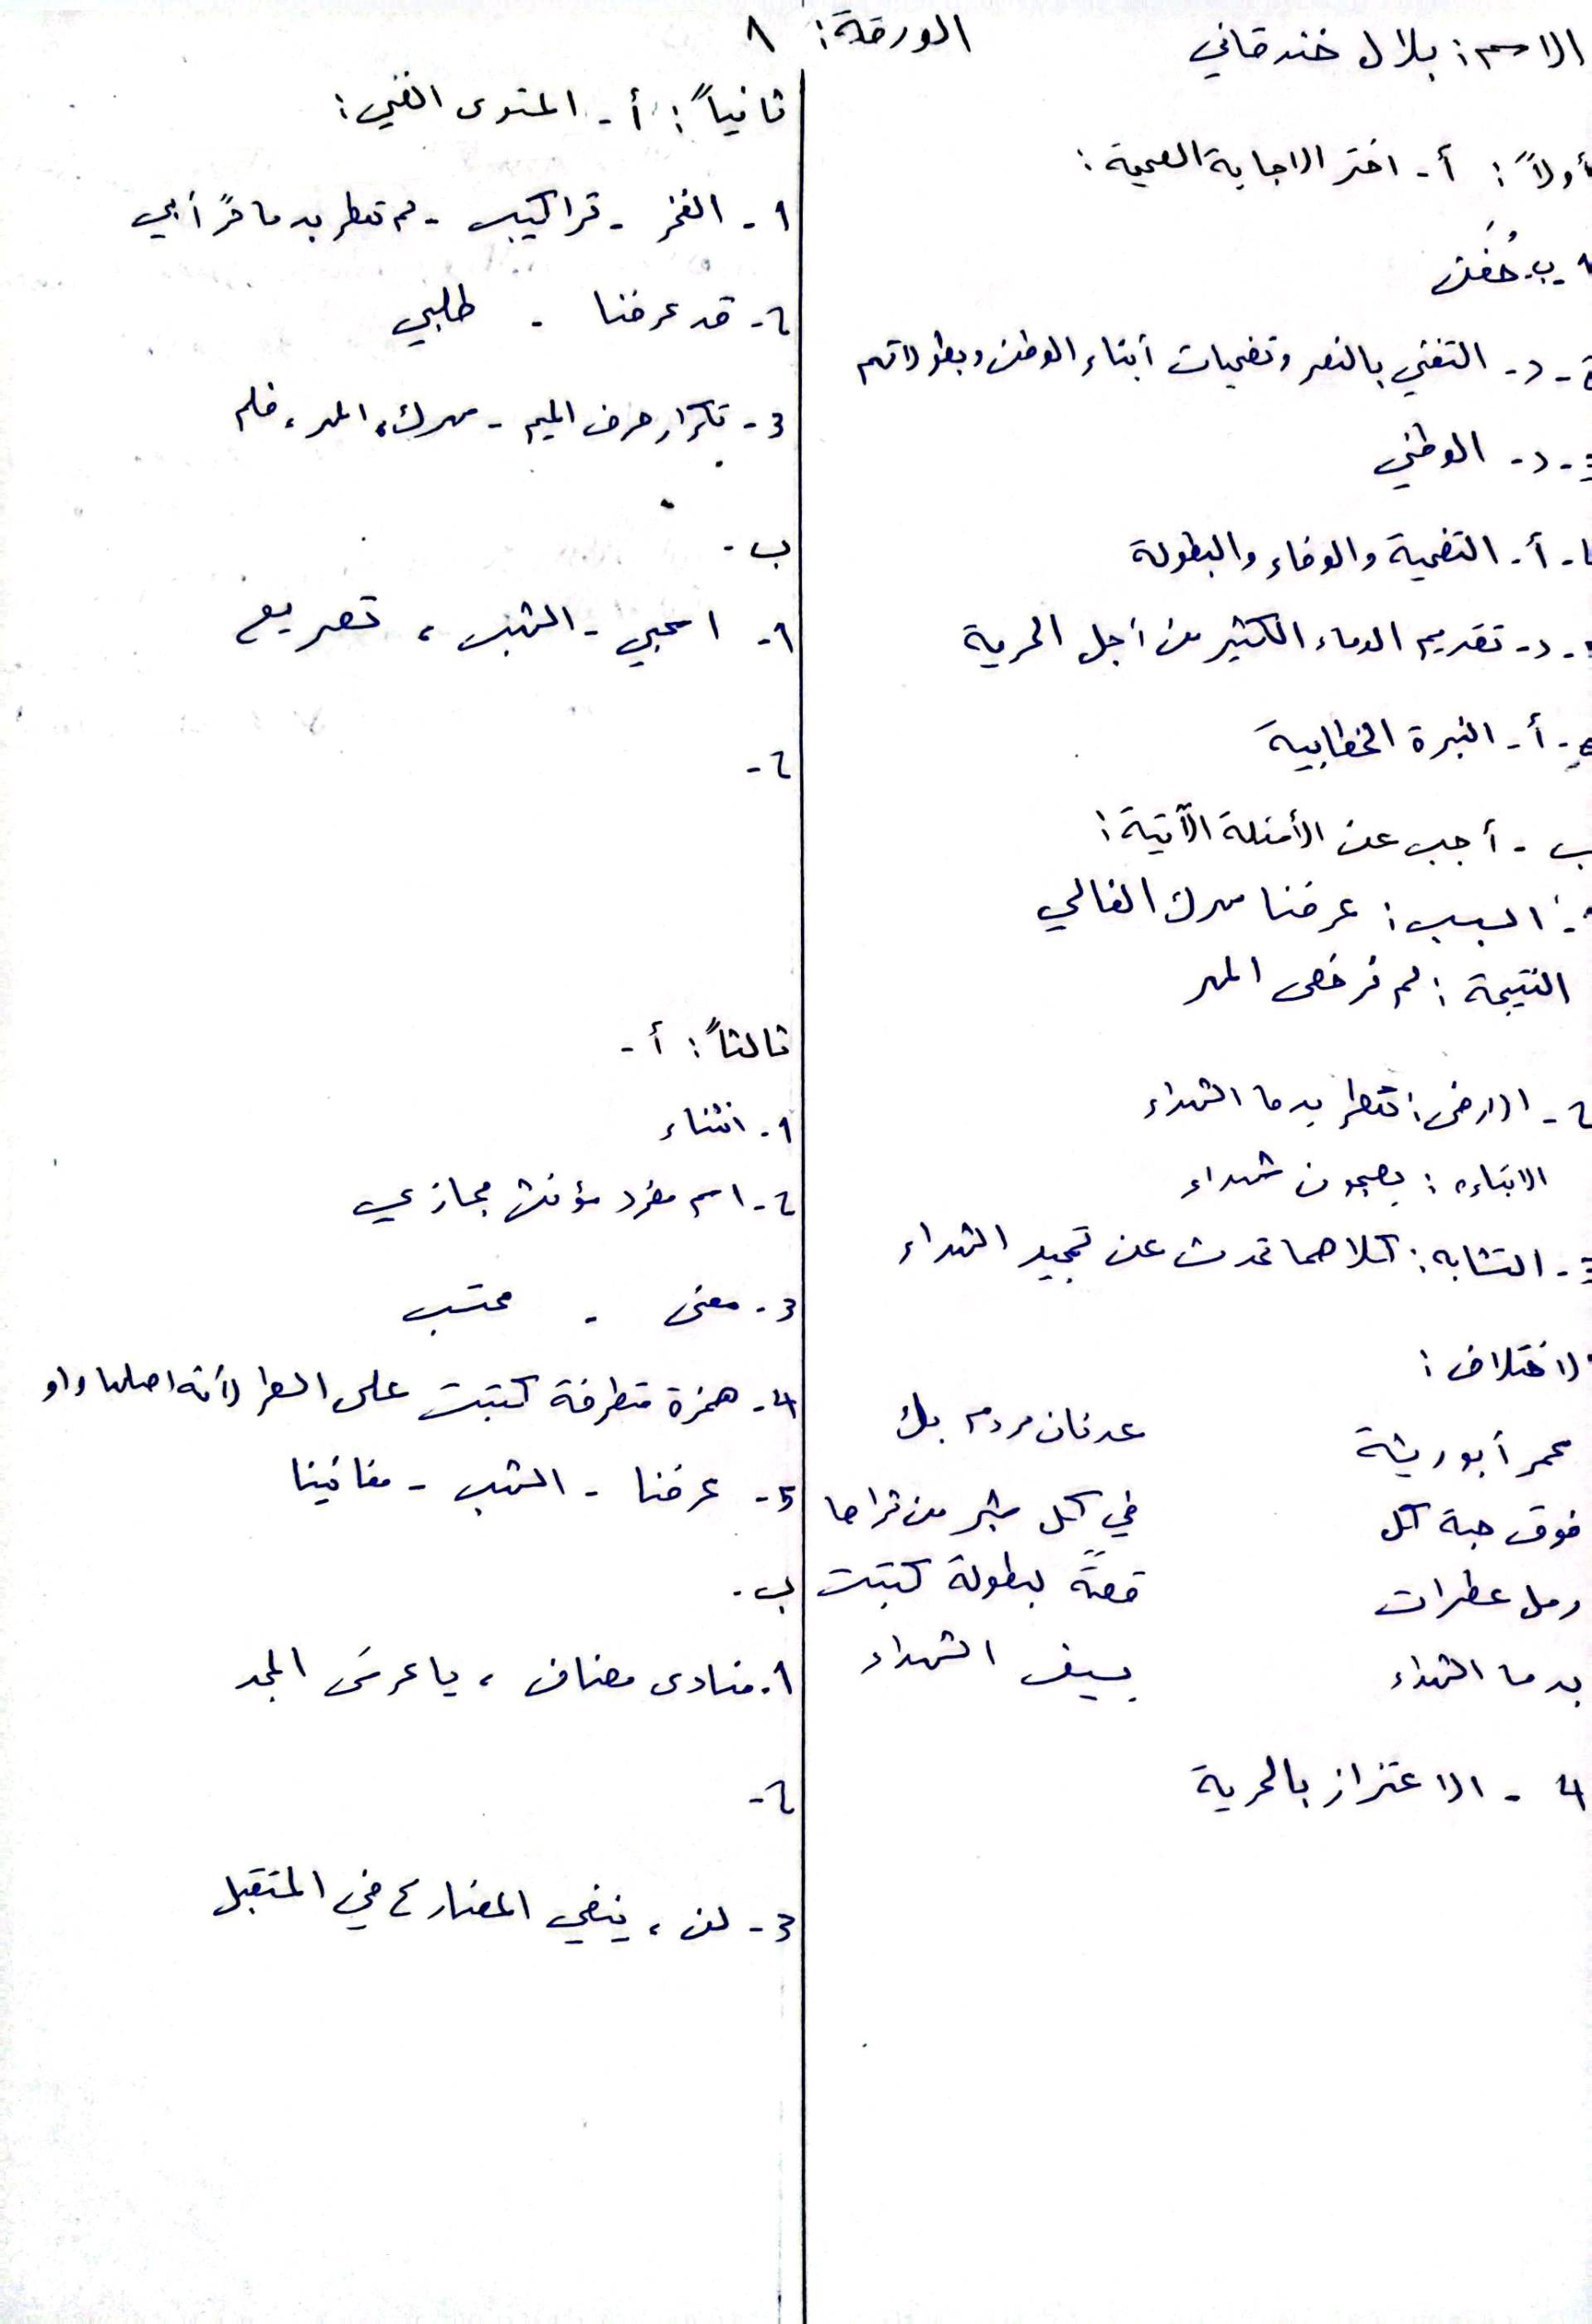 الاسم: بلال خندقاني
الورقة: ١
أولاً: أ- اختر الاجابة الصحيحة:
ب- خُفَّت
د- التغني بالنصر وتضحيات أبناء الوطن وبطولاتهم
د- الوطني
أ- التضحية والوفاء والبطولة
د- تقديم الدماء الكثير من أجل الحرية
أ- النبرة الخطابية
ب- أجب عن الأسئلة الآتية:
السبب: عرفنا مهرك الغالي
النتيجة: لم نرخص المهر
٢- الارض: تتعطر بدما الشهداء
الابناء: يصبحون شهداء
3- التشابه: كلاهما تحدث عن تمجيد الشهداء
الاختلاف:
عمر أبو ريشة
عدنان مردم بك
فوق حبة كل
في كل شبر من ثراها
رمل عطرات
قصةً لبطولة كتبت
بدما الشهداء
بسيف الشهداء
4- الاعتزاز بالحرية
ثانياً: أ- المستوى الفني:
١- الفخر - تراكيب - لم تعطر بدما حرً أبي
٢- قد عرفنا - طلبي
3- تكرار حرف الميم - مهرك، المهر، فلم
ب-
١- اسحبي - الشهب، تصريع
٢-
ثالثاً: أ-
١- انثناء
٢- اسم مفرد مؤنث مجازي
3- معنى - محتسب
4- همزة متطرفة كتبت على السطر لأنه اصلها واو
5- عرفنا - الشهب - مغانينا
ب-
١- منادى مضاف، يا عرسَ المجد
٢-
3- لن، ينفي المضارع في المستقبل